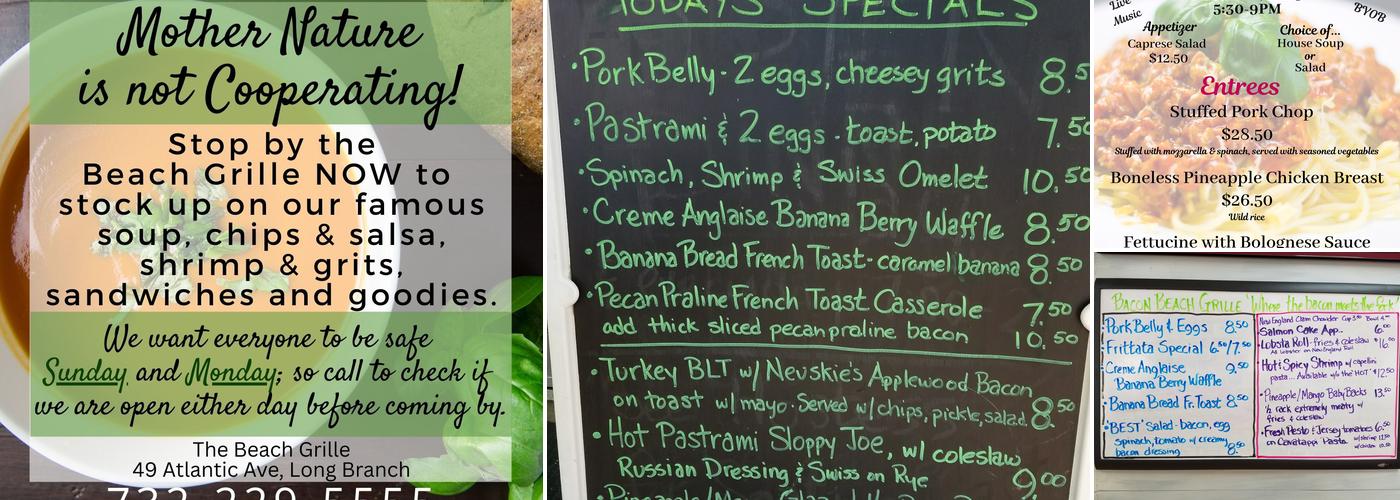 Mother Nature
is not Cooperating!
Stop by the
Beach Grille NOW to
stock up on our famous
soup, chips & salsa,
shrimp & grits,
sandwiches and goodies.
We want everyone to be safe
Sunday and Monday; so call to check if
we are open either day before coming by.
The Beach Grille
49 Atlantic Ave, Long Branch
732-229-5555
TODAYS SPECIALS
• Pork Belly - 2 eggs, cheesey grits 8.5
• Pastrami & 2 eggs - toast, potato 7.50
• Spinach, Shrimp & Swiss Omelet 10.50
• Creme Anglaise Banana Berry Waffle 8.50
• Banana Bread French Toast - caramel banana 8.50
• Pecan Praline French Toast Casserole 7.50
add thick sliced pecan praline bacon 10.50
• Turkey BLT w/ Nevskie's Applewood Bacon
on toast w/ mayo. Served w/ chips, pickle, salad. 8.50
• Hot Pastrami Sloppy Joe, w/ coleslaw
Russian Dressing & Swiss on Rye 9.00
Live Music
5:30-9PM
BYOB
Appetizer
Caprese Salad
$12.50
Choice of...
House Soup
or
Salad
Entrees
Stuffed Pork Chop
$28.50
Stuffed with mozzarella & spinach, served with seasoned vegetables
Boneless Pineapple Chicken Breast
$26.50
Wild rice
Fettucine with Bolognese Sauce
BACON BEACH GRILLE "Where the bacon meets the
• Pork Belly & Eggs 8.50
• Frittata Special 6.50/7.50
• Creme Anglaise 9.50
Banana Berry Waffle
• Banana Bread Fr. Toast 8.50
• "BEST" Salad - bacon, egg
spinach, tomato w/ creamy
bacon dressing 8.50
New England Clam Chowder Cup 3.50 Bowl
Salmon Cake App.. 6.00
• Lobsta Roll - fries & coleslaw $16.
All lobster on New England Roll
• Hot & Spicy Shrimp w/ capellini
pasta... Available w/o the "HOT" $12.50
• Pineapple/Mango Baby Backs 13.50
½ rack extremely meaty w/
fries & coleslaw
• Fresh Pesto & Jersey tomatoes 6.50
on Cavatappi Pasta